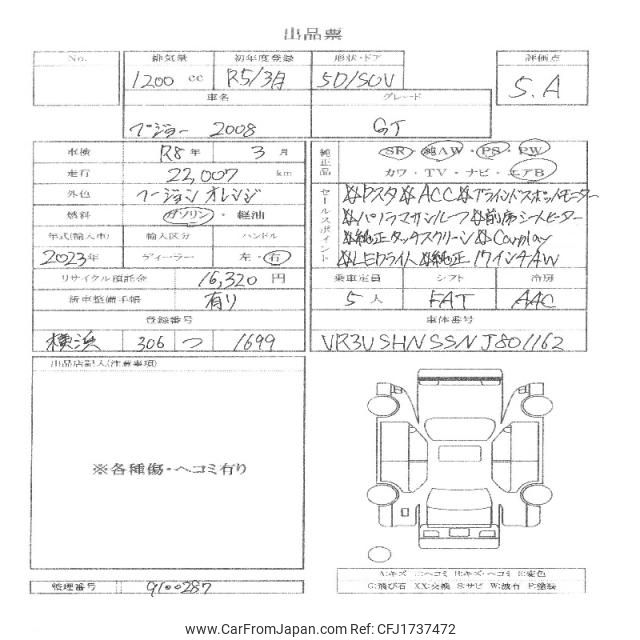 出品票
No. 排気量 初年度登録 形状・ドア 評価点
1200 cc R5/3月 5D/SUV 5.A
車名 グレード
プジョー 2008 GT
車検 R8年 3月
走行 22,007 km
外色 フージョンオレンジ
燃料 ガソリン・軽油
年式(輸入車) 輸入区分 ハンドル
2023年 ディーラー・ 左・右
リサイクル預託金 16,320 円
新車整備手帳 有り
登録番号
横浜 306 つ 1699
純正品 SR・純AW・PS・PW
カワ・TV・ナビ・エアB
セールスポイント
Pスタ ACC ブラインドスポットモニター
パノラマサンルーフ 前席シートヒーター
純正タッチスクリーン Carplay
LEDライト 純正17インチAW
乗車定員 シフト 冷房
5人 FAT AAC
車体番号
VR3USHNSSNJ801162
出品店記入(注意事項)
※各種傷・ヘコミ有り
A:キズ U:ヘコミ B:キズ・ヘコミ C:変色
G:飛び石 XX:交換 S:サビ W:波有 P:塗装
管理番号 9100287
www.CarFromJapan.com - Ref:CFJ1737472